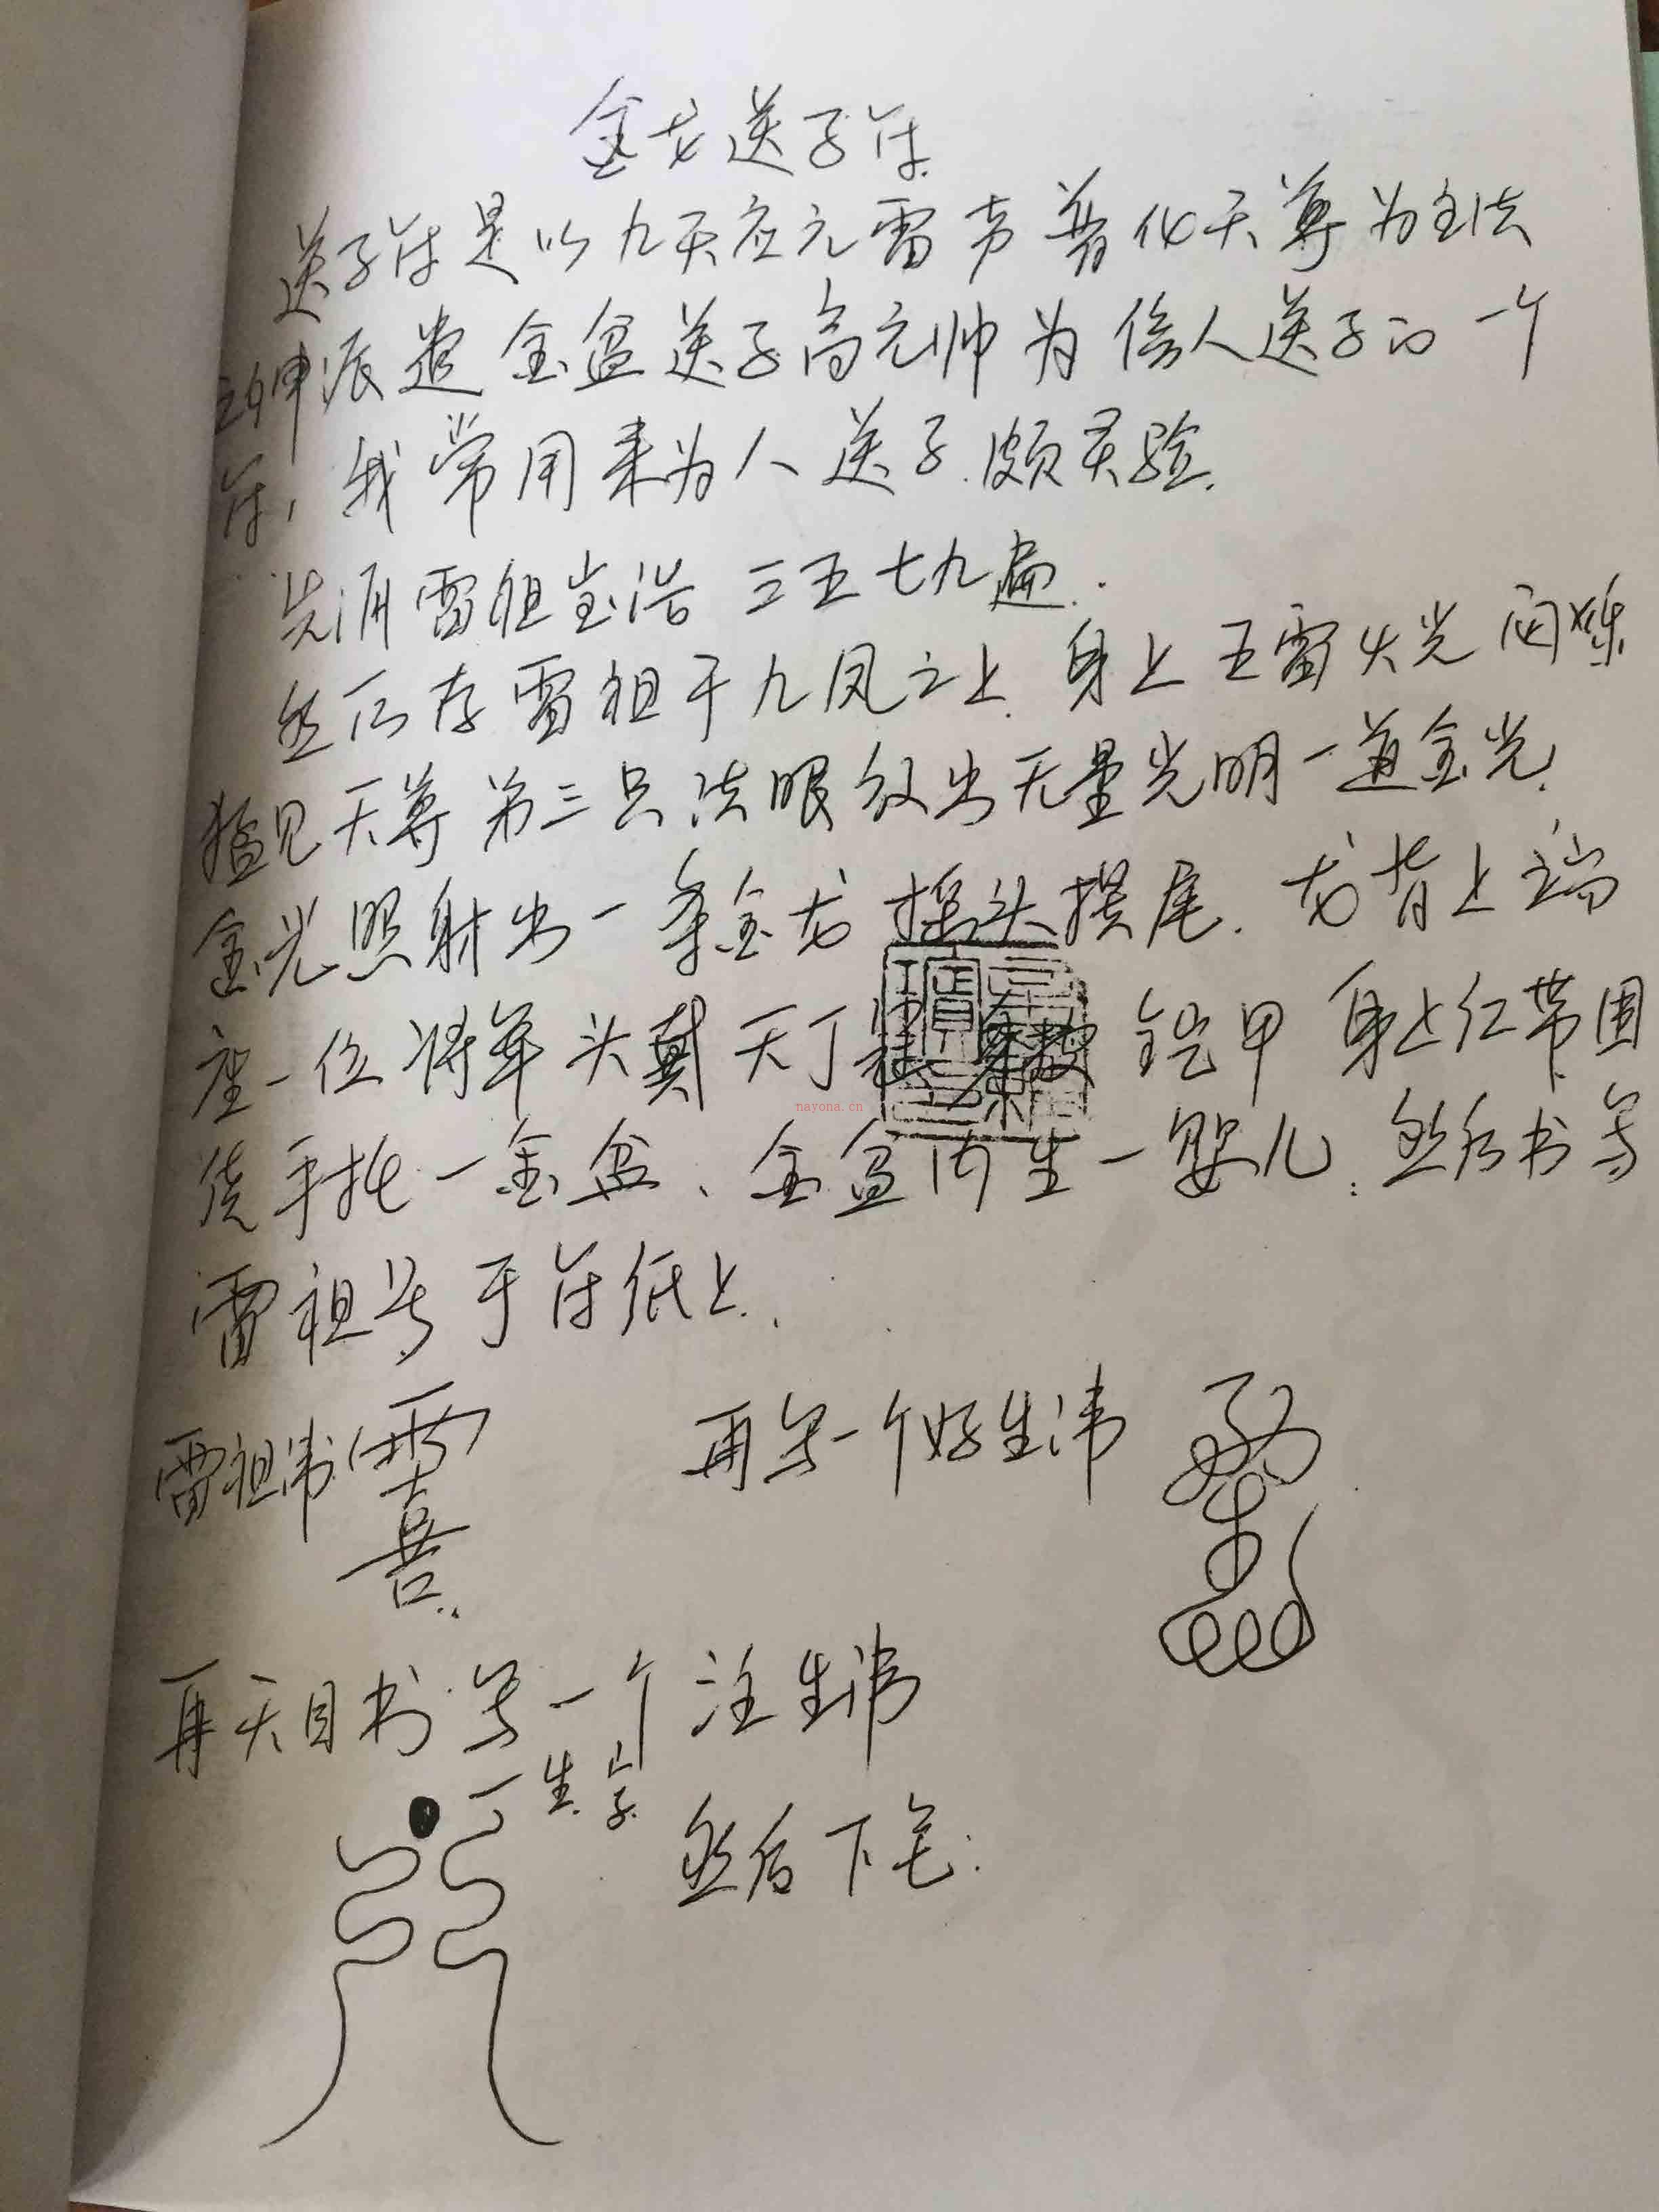 金龙送子符
送子符是以九天应元雷声普化天尊为主法
主神派遣金盆送子高元帅为信人送子的一个
符，我常用来为人送子.颇灵验.
先诵雷祖宝诰三五七九遍.
然后存雷祖于九凤之上.身上五雷火光闪烁
猛见天尊第三只法眼放出无量光明一道金光.
金光照射出一条金龙摇头摆尾.龙背上端
座一位将军头戴天丁冠身披铠甲身上红带围
绕手托一金盆、金盆内生一婴儿.然后书写
雷祖号于符纸上.
雷祖讳
再写一个好生讳
再天目书写一个注生讳
一生字
然后下笔:
nayona.cn